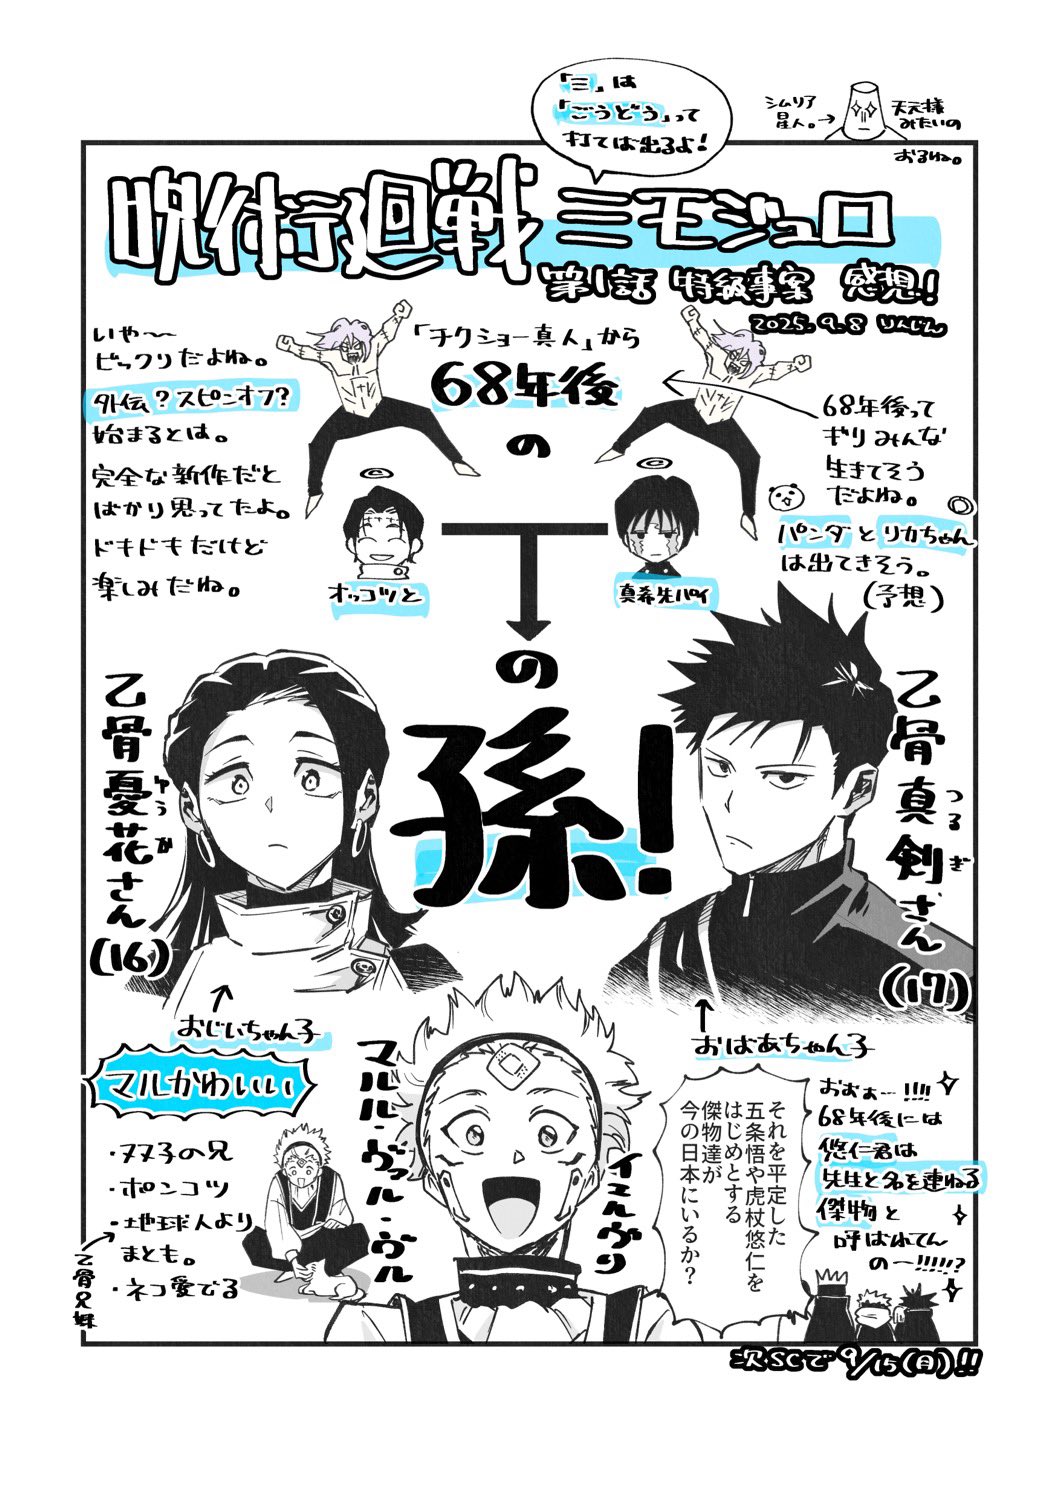 「三」は
「ごうどう」って
打てば出るよ！
シムリア
星人。→
天元様
みたいの
おるね。
呪術廻戦 三モジュロ
第1話 特級事案 感想！
2025.9.8 りんじん
いや〜
ビックリだよね。
外伝？スピンオフ？
始まるとは。
完全な新作だと
ばかり思ってたよ。
ドキドキだけど
楽しみだね。
「チクショー真人」から
68年後
の
68年後って
ギリみんな
生きてそう
だよね。
パンダとリカちゃん
は出てきそう。
（予想）
オッコツと
真希先パイ
の
孫！
乙骨憂花さん
ゆうか
(16)
乙骨真剣さん
つるぎ
(17)
おじいちゃん子
おばあちゃん子
マルかわいい
・双子の兄
・ポンコツ
・地球人より
まとも。
・ネコ愛でる
乙骨兄妹
マルル・ヴァル・ヴル
イェルヴリ
それを平定した
五条悟や虎杖悠仁を
はじめとする
傑物達が
今の日本にいるか？
おおぉ…!!!!
68年後には
悠仁君は
先生と名を連ねる
傑物と
呼ばれてん
のー!!!!!?
次SCで9/15(月)!!